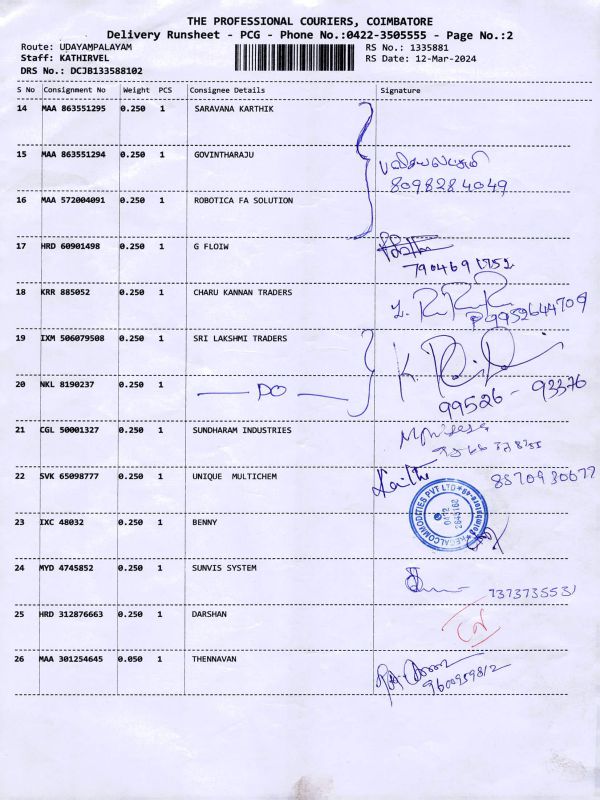 THE PROFESSIONAL COURIERS, COIMBATORE
Delivery Runsheet - PCG - Phone No.:0422-3505555 - Page No.:2
Route: UDAYAMPALAYAM RS No.: 1335881
Staff: KATHIRVEL RS Date: 12-Mar-2024
DRS No.: DCJB133588102
S No Consignment No Weight PCS Consignee Details Signature
14 MAA 863551295 0.250 1 SARAVANA KARTHIK
15 MAA 863551294 0.250 1 GOVINTHARAJU
8098284049
16 MAA 572004091 0.250 1 ROBOTICA FA SOLUTION
17 HRD 60901498 0.250 1 G FLOIW
18 KRR 885052 0.250 1 CHARU KANNAN TRADERS
9952644709
19 IXM 506079508 0.250 1 SRI LAKSHMI TRADERS
20 NKL 8190237 0.250 1 DO
99526 - 93376
21 CGL 50001327 0.250 1 SUNDHARAM INDUSTRIES
22 SVK 65098777 0.250 1 UNIQUE MULTICHEM
8870930677
23 IXC 48032 0.250 1 BENNY
24 MYD 4745852 0.250 1 SUNVIS SYSTEM
7373735531
25 HRD 312876663 0.250 1 DARSHAN
26 MAA 301254645 0.050 1 THENNAVAN
9600959812